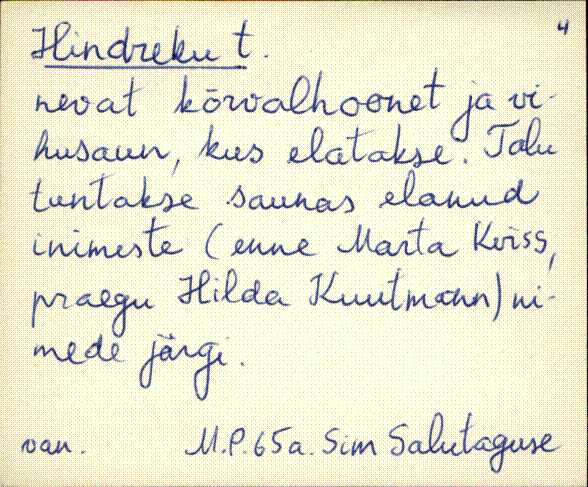 4
Hindreku t.
nevat kõrvalhoonet ja vi-
husaun, kus elatakse. Talu
tuntakse saunas elanud
inimeste (enne Marta Kviss,
praegu Hilda Kuutmann) ni-
mede järgi.
van. M.P. 65 a. Sim Salutaguse